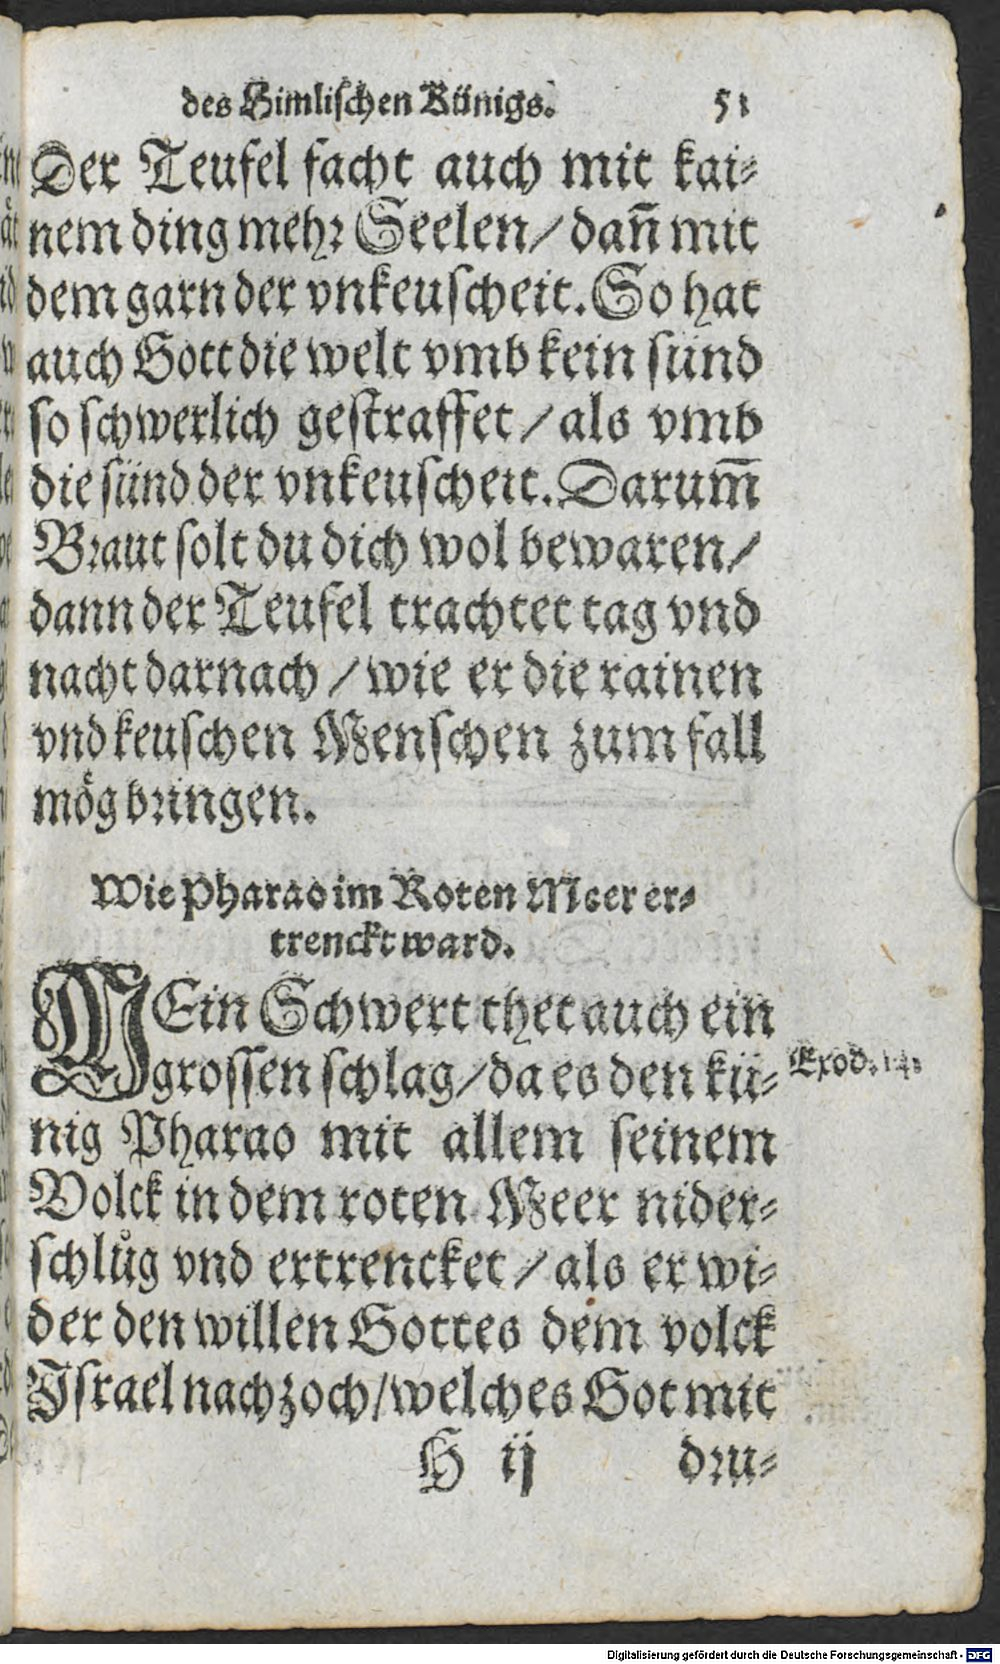 des Himlischen Künigs. 51
Der Teufel facht auch mit kai⸗
nem ding mehr Seelen/ dañ mit
dem garn der vnkeuscheit. So hat
auch Gott die welt vmb kein sünd
so schwerlich gestraffet/ als vmb
die sünd der vnkeuscheit. Darum̃
Braut solt du dich wol bewaren/
dann der Teufel trachtet tag vnd
nacht darnach/ wie er die rainen
vnd keuschen Menschen zum fall
mög bringen.
Wie Pharao im Roten Meer er⸗
trenckt ward.
MEin Schwert thet auch ein
grossen schlag/ da es den kü⸗
Exod. 14.
nig Pharao mit allem seinem
Volck in dem roten Meer nider⸗
schlůg vnd ertrencket/ als er wi⸗
der den willen Gottes dem volck
Israel nachzoch/ welches Got mit
H ij dru⸗
Digitalisierung gefördert durch die Deutsche Forschungsgemeinschaft - DFG